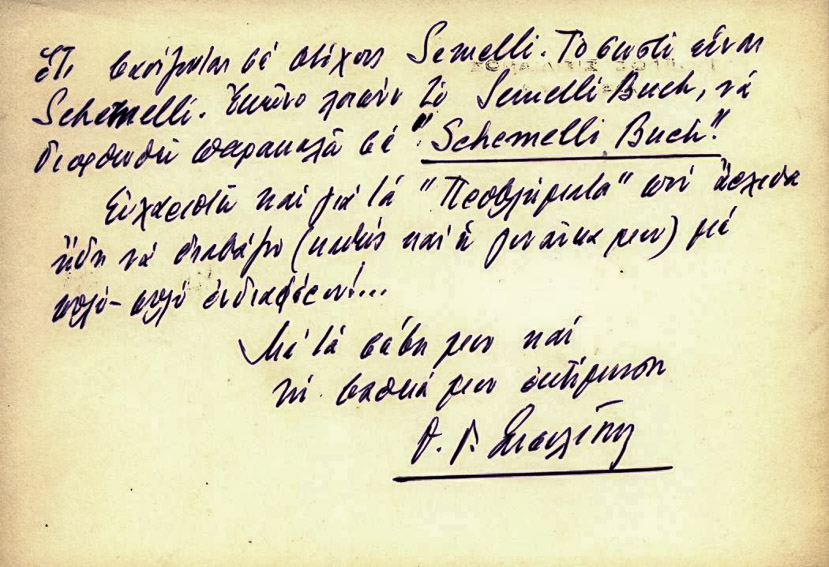 ὅτι βασίζονται σέ στίχους Semelli. Τό σωστό εἶναι
Schemelli. Ἐκεῖνο λοιπόν τό Semelli Buch, νά
διορθωθῆ παρακαλῶ σέ "Schemelli Buch".
Εὐχαριστῶ καί γιά τά "Προβλήματα" πού ἄρχισα
ἤδη νά διαβάζω (καθώς καί ἡ γυναῖκα μου) μέ
πολύ-πολύ ἐνδιαφέρον!...
Μέ τά σέβη μου καί
τή βαθειά μου ἐκτίμηση